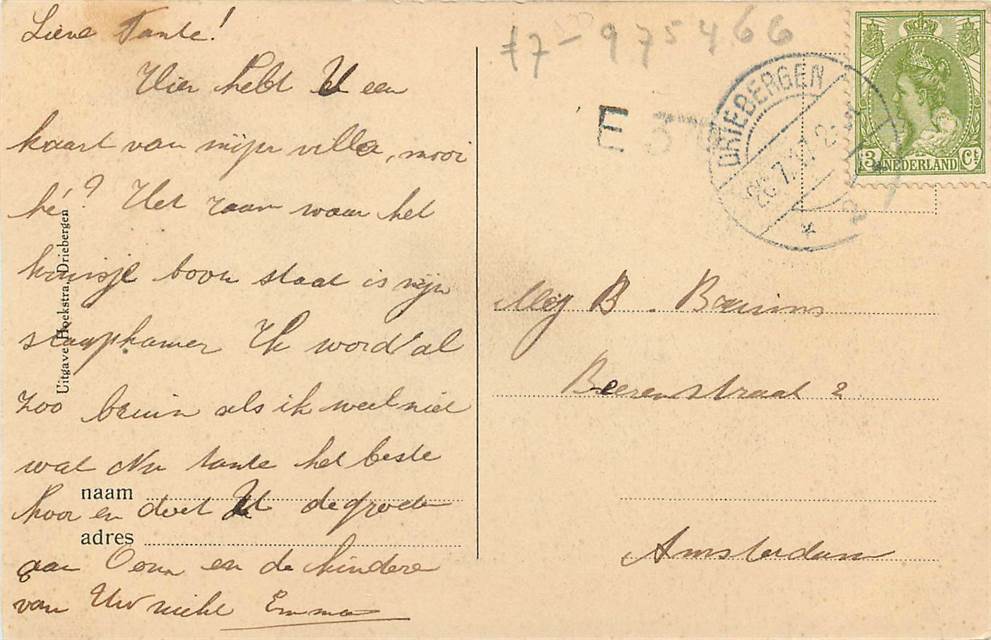 Lieve Tante!
Hier hebt U een
kaart van mijn villa, mooi
hé? Het raam waar het
kruisje boven staat is mijn
slaapkamer Ik word al
zoo bruin als ik weet niet
wat Nu tante het beste
hoor en doet U de groeten
aan Oom en de kinderen
van Uw nicht Emma
naam
adres
Uitgave Hoekstra, Driebergen
47-975466
E 3
DRIEBERGEN
NEDERLAND
3 Ct
Mej B. Bruins
Beerenstraat 2
Amsterdam